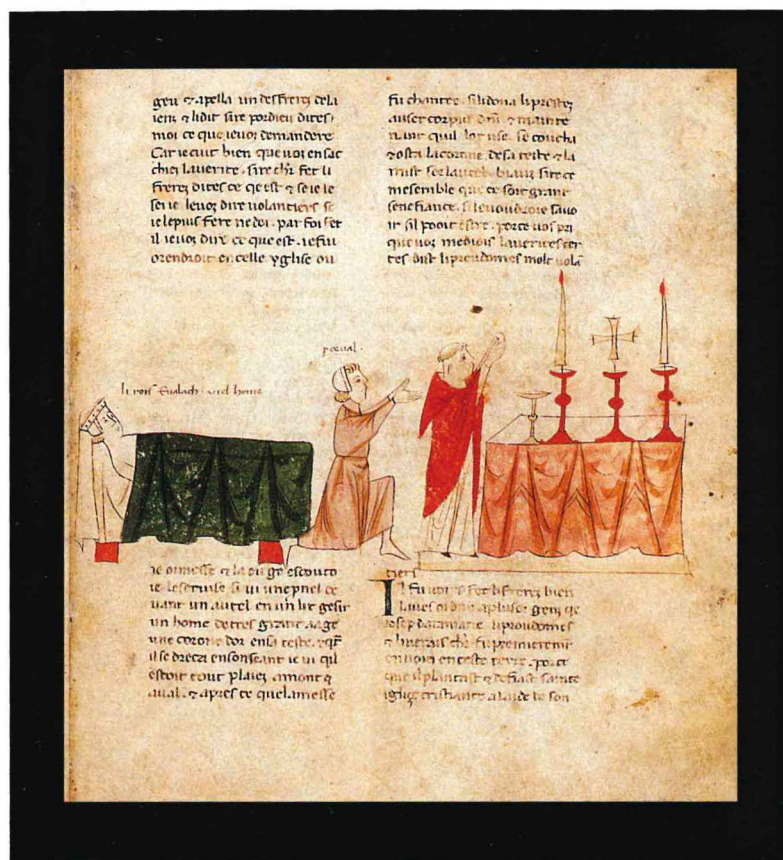 geu ⁊ apella un des freres dela
iens ⁊ li dit sire por dieu dites
moi ce que ie uos demandere
Car ie cuit bien que uos en sac
chiez la uerite. sire chr fet li
freres dites ce qe est ⁊ se ie le
sei ie leuos dire volantiers se
ie le puis fere ne doi. par foi fet
il ieuos dire ce que est. ie fui
orendroit en celle yglise ou
fu chantee. si li dona li prestes
auser corpus dni ⁊ mainte
nant quil lot use. se coucha
⁊ osta la corone de sa teste ⁊ la
mist sor lautel. biaus sire ce
me semble que ce soit grant
senefiance. si le uoudroie sauo
ir sil pooit estre. por ce uos pri
que uos me diois la uerite. cer
tes dist li preudomes molt uola
p̄ceual.
li rois Eualach. viel home
ie oi messe ⁊ la ou ge escouto
ie le seruise si ui une pucel de
uant un autel en un lit gesir
un home de tres grant aage
une corone dor en sa teste. ⁊ qr
il se dreca en son seant ie ui qil
estoit tout plaiez amont ⁊
aual. ⁊ apres ce que la messe
tiers
Il fu uoirs fet li freres bien
laues oi dire a plusor gens qe
iosep darimatie li preudomes
⁊ li uerais chr fu premieremt
enuoiez en ceste terre. por ce
que il plantast ⁊ edefiast sainte
iglise cristiane a laide de son